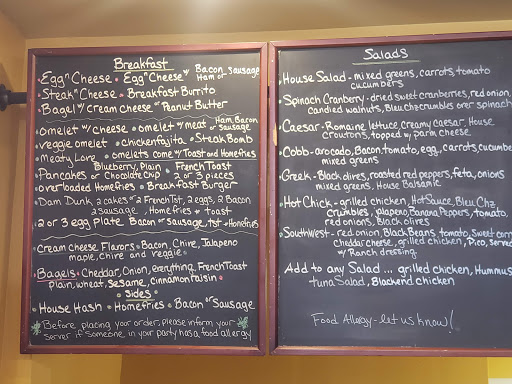 Breakfast
• Egg n' Cheese • Egg n' Cheese w/ Bacon, Sausage
Ham or
• Steak n' Cheese • Breakfast Burrito
• Bagel w/ Cream cheese or Peanut Butter
• omelet w/ cheese • omelet w/ meat Ham, Bacon
or Sausage
veggie omelet • chicken fajita • Steak Bomb
• Meaty Love • omelets come w/ Toast and Homefries
Blueberry, Plain • French Toast
• Pancakes or Chocolate Chip • 2 or 3 pieces
• overloaded Homefries • Breakfast Burger
• Dam Dunk 2 cakes or 2 French Tst, 2 eggs, 2 Bacon
2 Sausage, Homefries + toast
• 2 or 3 egg Plate Bacon or Sausage, tst + Homefries
Cream Cheese Flavors • Bacon, Chive, Jalapeno
maple, Chive and veggie
• Bagels • Cheddar, Onion, everything, French Toast
plain, wheat, Sesame, Cinnamon raisin
• Sides •
• House Hash • Homefries • Bacon or Sausage
Before placing your order, please inform your
server if someone in your party has a food allergy
Salads
• House Salad - mixed greens, carrots, tomato
cucumbers
• Spinach Cranberry - dried sweet cranberries, red onion,
candied walnuts, Bleu chz crumbles over spinach
• Caesar - Romaine lettuce, creamy caesar, House
croutons, topped w/ parm cheese
• Cobb - avocado, Bacon, tomato, egg, carrots, cucumber
mixed greens
• Greek - Black olives, roasted red peppers, feta, onions
mixed greens, House Balsamic
• Hot Chick - grilled chicken, Hot Sauce, Bleu Chz
crumbles, jalapeno, Banana Peppers, tomato,
red onions, Black olives
• Southwest - red onion, Black Beans, tomato, sweet corn
cheddar cheese, grilled chicken, Pico, served
w/ Ranch dressing
Add to any Salad ... grilled chicken, Hummus
tuna Salad, Blackend chicken
Food Allergy - let us know!